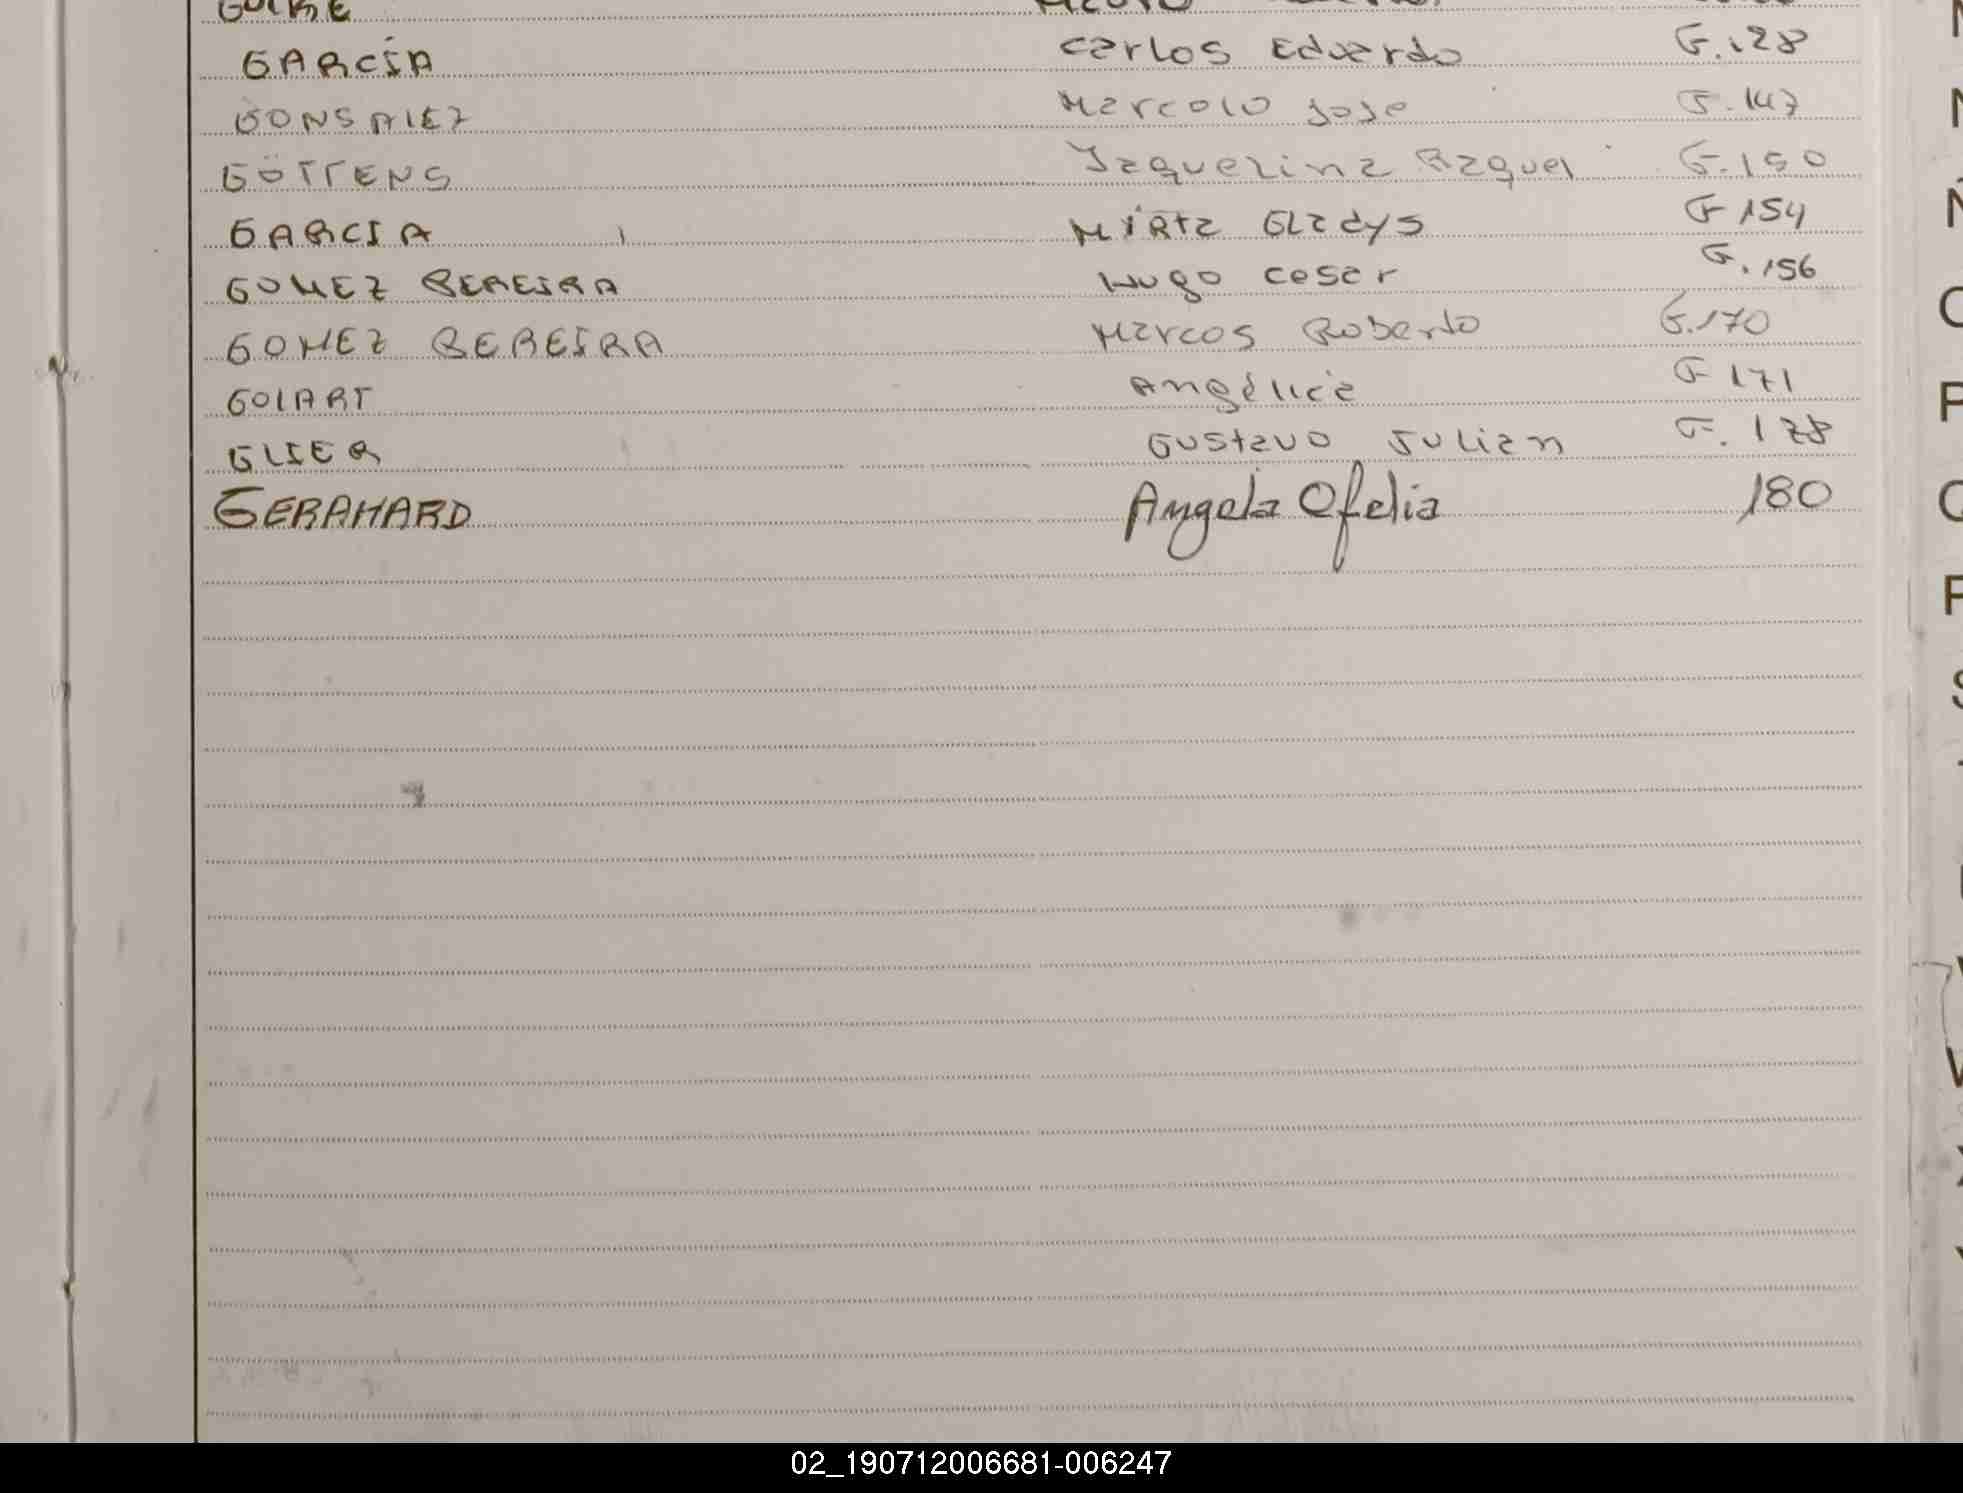 GARCÍA Carlos Eduardo G.128
GONSALEZ Marcelo Jose G.147
GÖTTENS Jaquelina Raquel G.150
GARCIA Mirta Gladys G 154
GOMEZ BEREIRA Hugo Cesar G.156
GOMEZ BEREIRA Marcos Roberto G.170
GOLART Angélica G 171
GLIER Gustavo Julian G. 178
GERAHARD Angela Ofelia 180
02_190712006681-006247